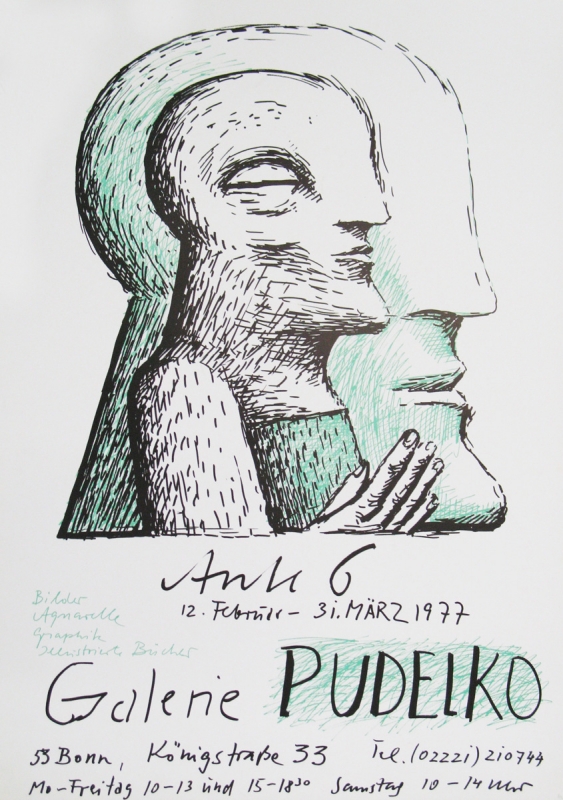 Antes 6
12. Februar – 31. MÄRZ 1977
Bilder
Aquarelle
Graphik
Illustrierte Bücher
Galerie PUDELKO
53 Bonn, Königstraße 33 Tel. (02221) 210744
Mo-Freitag 10-13 und 15-18³⁰ Samstag 10-14 Uhr